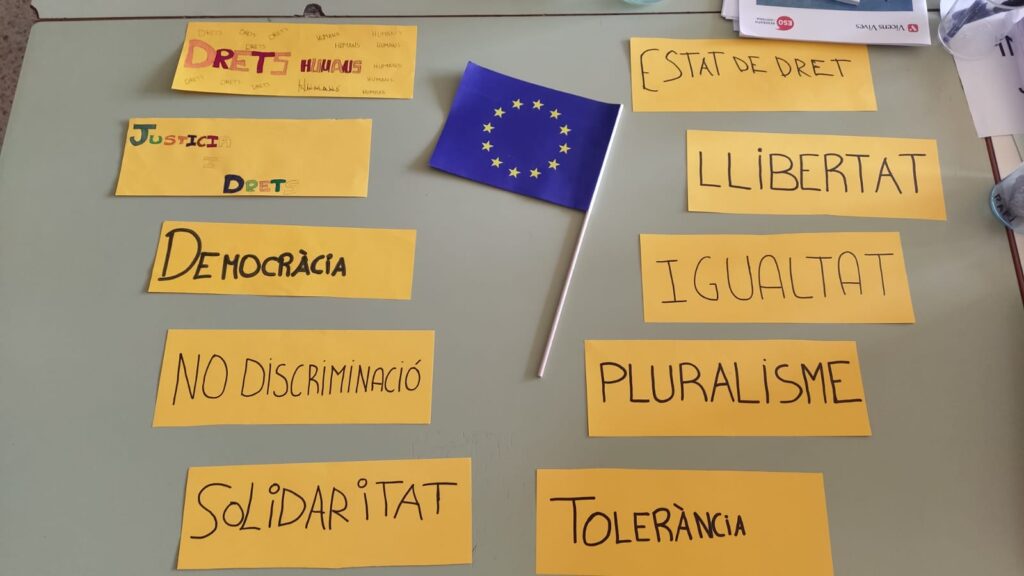 DRETS DRETS DRETS HUMANS HUMANS
DRETS HUMANS HUMANS
DRETS HUMANS HUMANS
DRETS HUMANS
DRETS DRETS HUMANS HUMANS
JUSTICIA
=
DRETS
DEMOCRÀCIA
NO DISCRIMINACIÓ
SOLIDARITAT
ESTAT DE DRET
LLIBERTAT
IGUALTAT
PLURALISME
TOLERÀNCIA
ESO
Vicens Vives